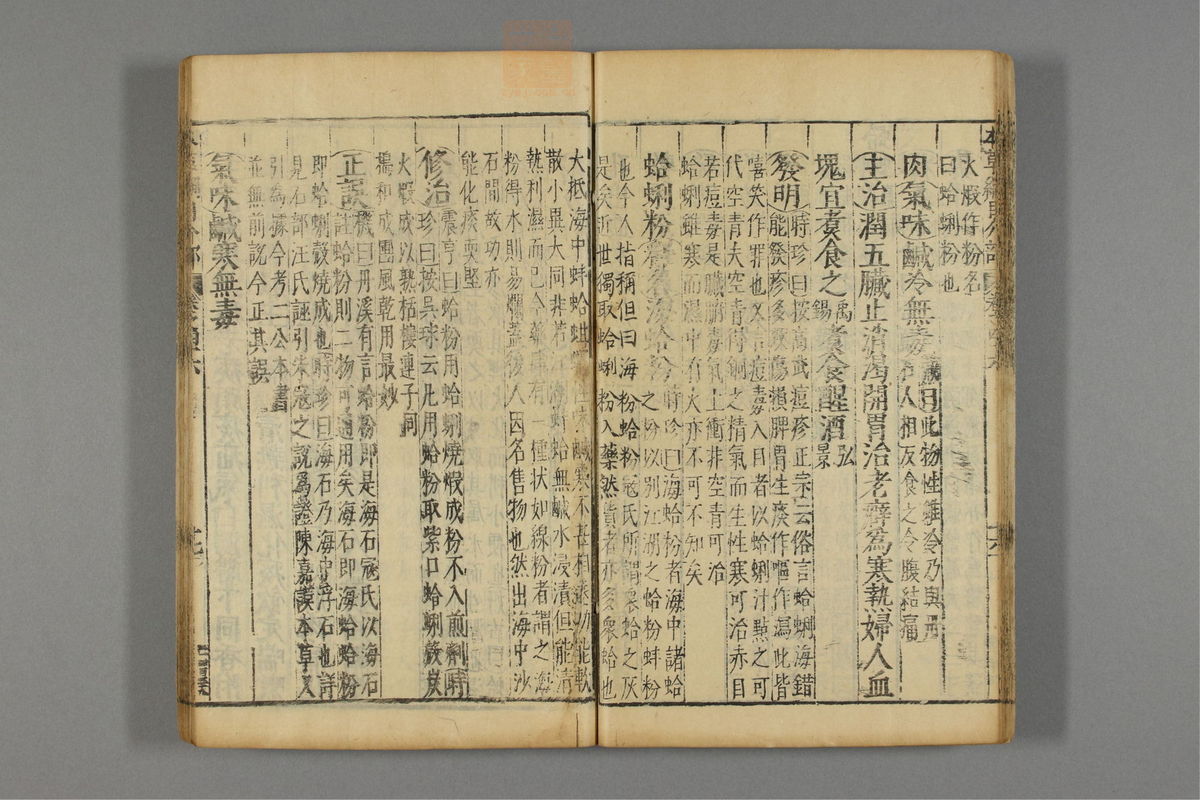 火煅作粉名
曰蛤蜊粉也
肉氣味鹹冷無毒藏器曰此物性雖冷乃與丹
石人相反食之令腹結痛
主治潤五臟止消渴開胃治老癖為寒熱婦人血
塊宜煮食之禹錫煮食醒酒弘景
發明時珍曰按高武痘疹正宗云俗言蛤蜊海錯
能發疹多致傷損脾胃生痰作嘔作瀉此皆
嘻笑作罪也又言痘毒入目者以蛤蜊汁點之可
代空青夫空青得銅之精氣而生性寒可治赤目
若痘毒是臟腑毒氣上衝非空青可治
蛤蜊雖寒而濕中有火亦不可不知矣
蛤蜊粉釋名海蛤粉時珍曰海蛤粉者海中諸蛤
之粉以別江湖之蛤粉蚌粉
也今人指稱但曰海粉蛤粉寇氏所謂衆蛤之灰
是矣近世獨取蛤蜊粉入藥然貨者亦多衆蛤也
大抵海中蚌蛤蚶蠣性味鹹寒不甚相遠功能軟
散小異大同非若江湖蚌蛤無鹹水浸漬但能清
熱利濕而已今藥肆有一種狀如線粉者謂之海
粉得水則易爛蓋後人因名售物也然出海中沙
石間故功亦
能化痰耎堅
修治震亨曰蛤粉用蛤蜊燒煅成粉不入煎劑時
珍曰按吳球云凡用蛤粉取紫口蛤蜊殼炭
火煅成以熟栝樓連子同
搗和成團風乾用最妙
正誤機曰丹溪有言蛤粉即是海石寇氏以海石
註蛤粉則二物可通用矣海石即海蛤蛤粉
即蛤蜊殼燒成也時珍曰海石乃海中浮石也詳
見石部汪氏誣引朱寇之說爲證陳嘉謨本草又
引為據今考二公本書
並無前說今正其誤
氣味鹹寒無毒